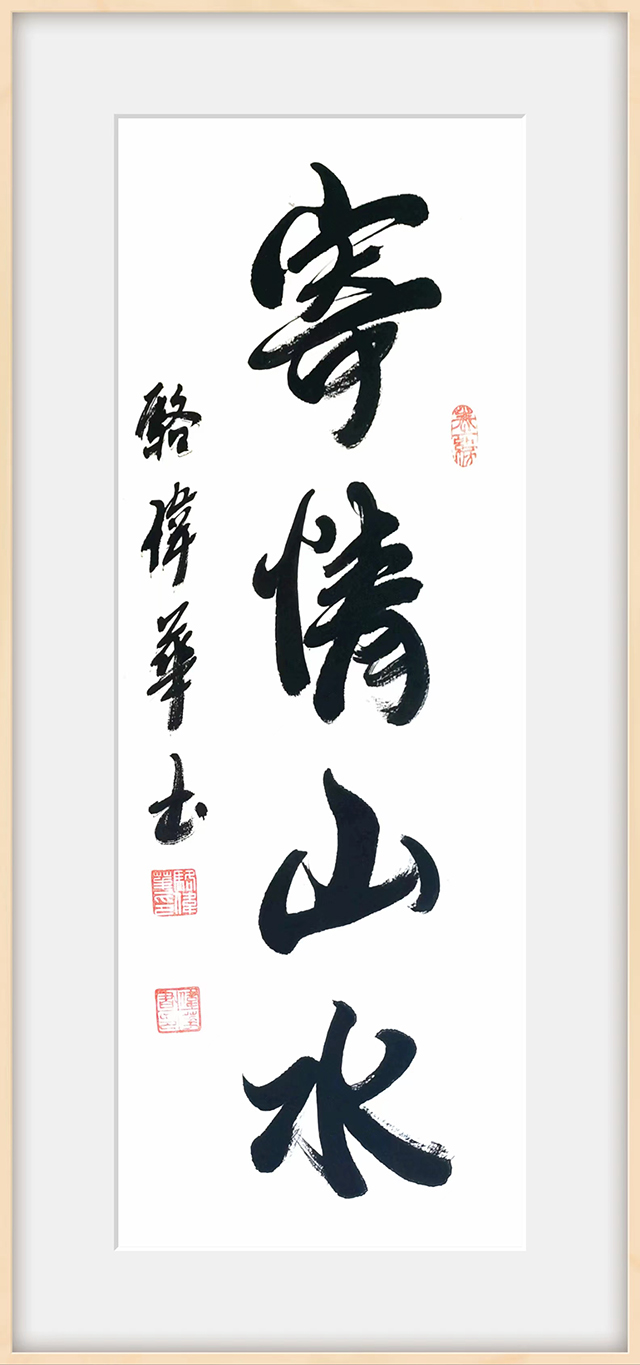 寄情山水
駱偉華书